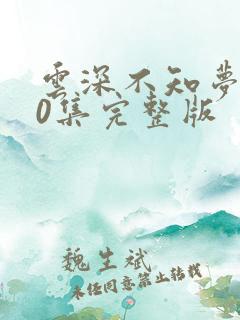 雲深不知夢
0集完整版
魏生斌
未经同意禁止转载